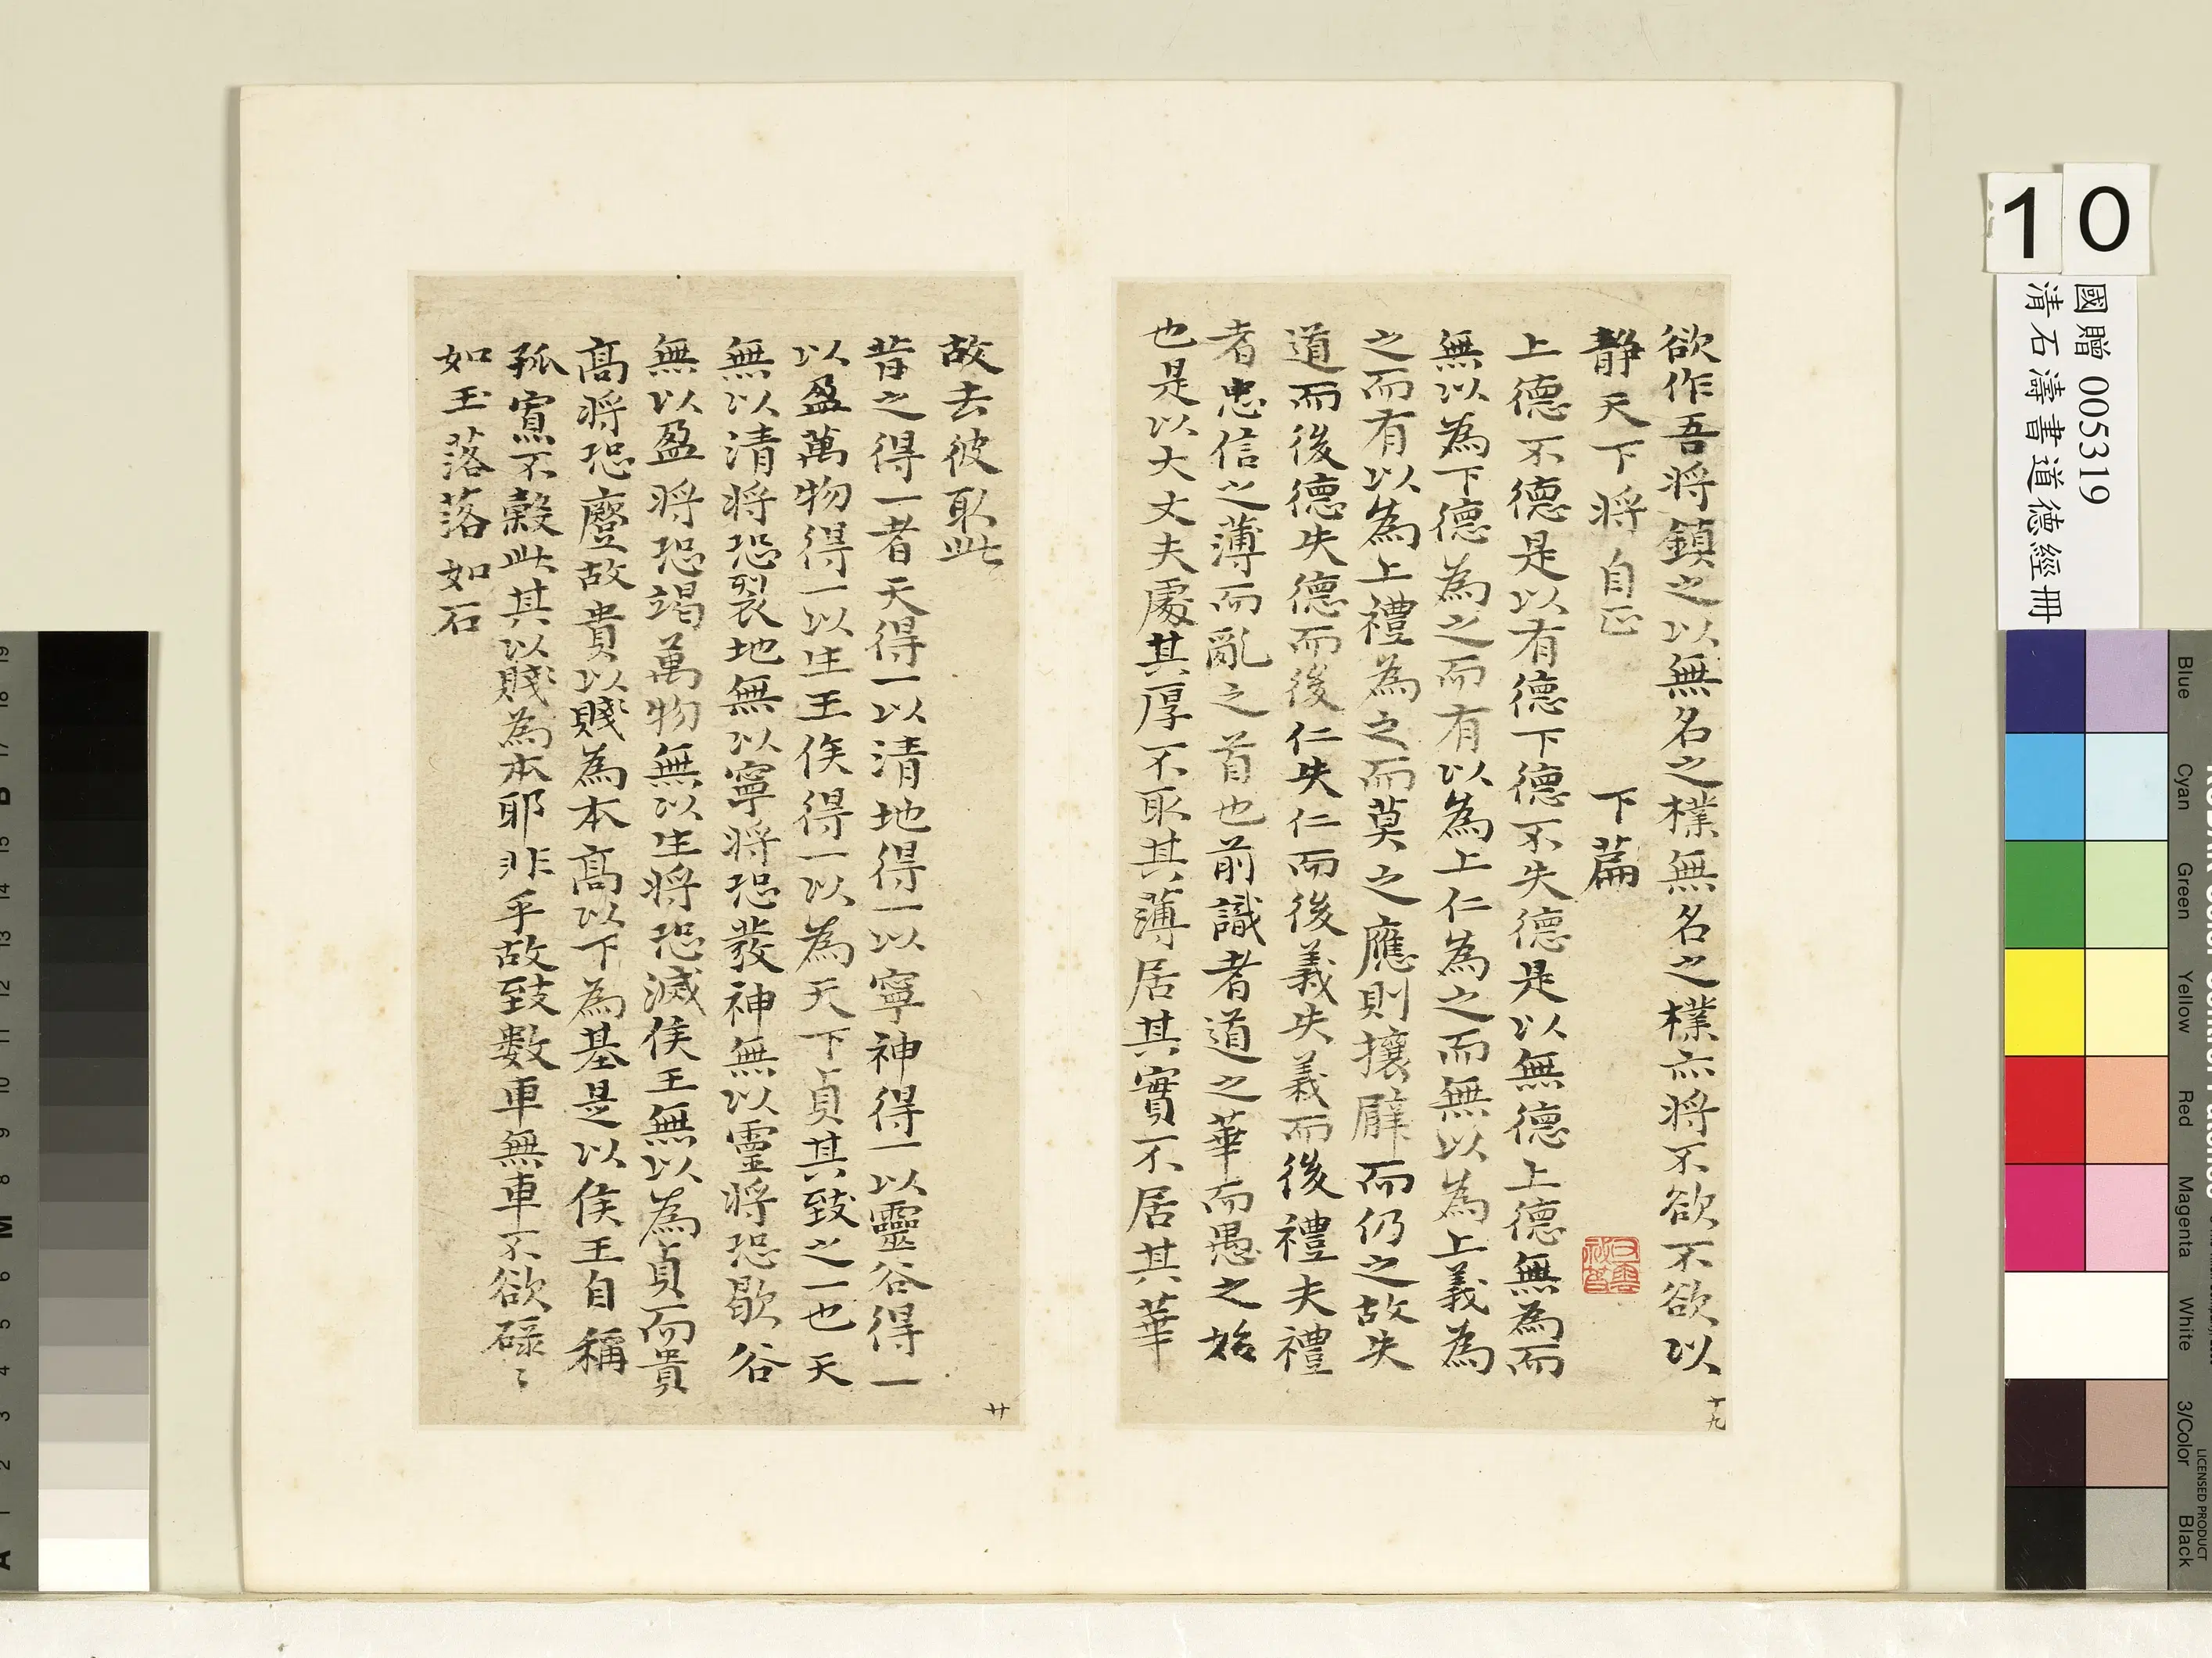 欲作吾将鎮之以無名之樸無名之樸亦将不欲不欲以
静天下将自正 下篇
上德不德是以有德下德不失德是以無德上德無為而
無以為下德為之而有以為上仁為之而無以為上義為
之而有以為上禮為之而莫之應則攘臂而仍之故失
道而後德失德而後仁失仁而後義失義而後禮夫禮
者忠信之薄而亂之首也前識者道之華而愚之始
也是以大丈夫處其厚不取其薄居其實不居其華
十九
故去彼取此
昔之得一者天得一以清地得一以寧神得一以靈谷得一
以盈萬物得一以生王侯得一以為天下貞其致之一也天
無以清将恐裂地無以寧将恐發神無以靈将恐歇谷
無以盈将恐竭萬物無以生将恐滅侯王無以為貞而貴
高将恐蹷故貴以賤為本高以下為基是以侯王自稱
孤寡不穀此其以賤為本耶非乎故致數車無車不欲碌〻
如玉落落如石
廿
10
國贈 005319
清石濤書道德經冊
Blue
Cyan
Green
Yellow
Red
Magenta
White
3/Color
Black
LICENSED PRODUCT
A 1 2 3 4 5 6 M 8 9 10 11 12 13 14 15 B 17 18 19